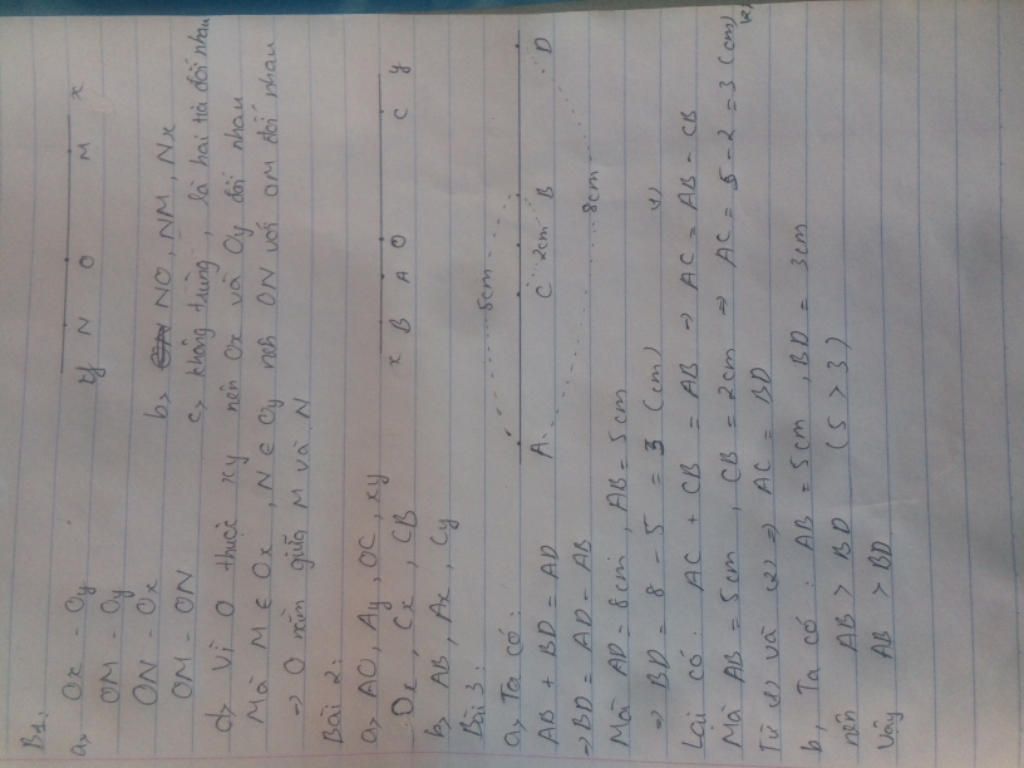 B1:
y N O M x
a, Ox - Oy
OM - Oy
ON - Ox
OM - ON
b, NO, NM, Nx
c, không trùng, là hai tia đối nhau
d, Vì O thuộc xy nên Ox và Oy đối nhau
Mà M ∈ Ox, N ∈ Oy nên ON với OM đối nhau
=> O nằm giữa M và N
Bài 2:
x B A O C y
a, AO, Ay, OC, xy
Ox, Cx, CB
b, AB, Ax, Cy
Bài 3:
5cm
A C 2cm B D
8cm
a, Ta có:
AB + BD = AD
=> BD = AD - AB
Mà AD = 8cm, AB = 5cm
=> BD = 8 - 5 = 3 (cm) (1)
Lại có: AC + CB = AB => AC = AB - CB
Mà AB = 5cm, CB = 2cm => AC = 5 - 2 = 3 (cm) (2)
Từ (1) và (2) => AC = BD
b, Ta có: AB = 5cm, BD = 3cm
nên AB > BD (5 > 3)
Vậy AB > BD